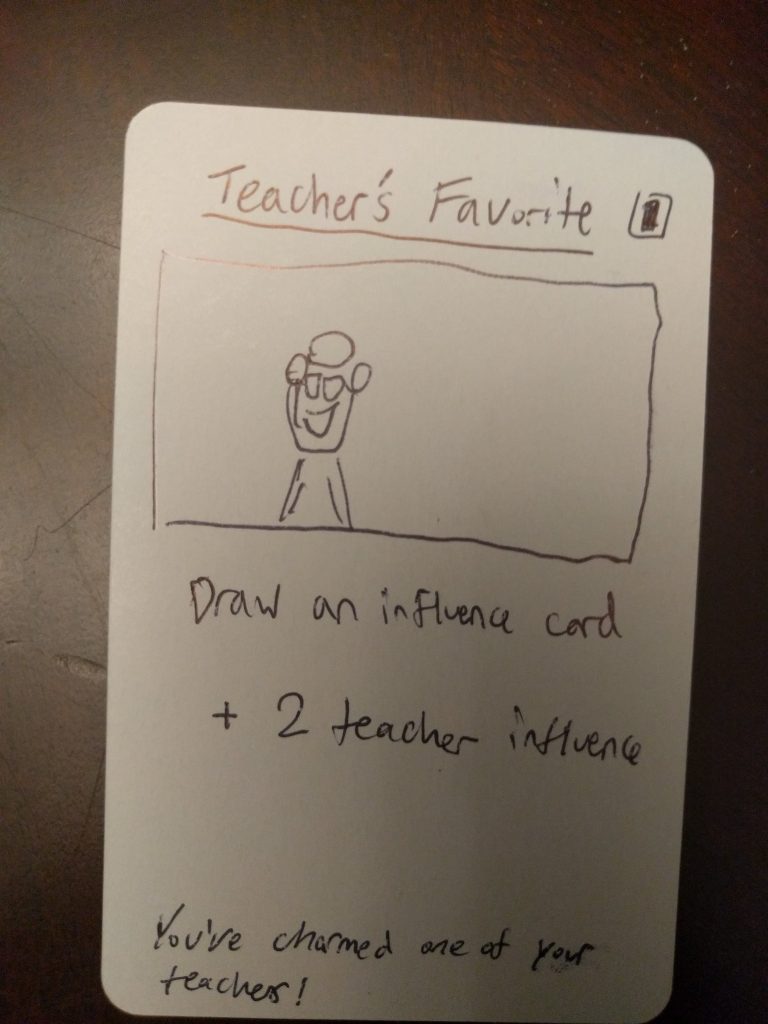 Teacher's Favorite
Draw an influence card
+ 2 teacher influence
You've charmed one of your
teachers!